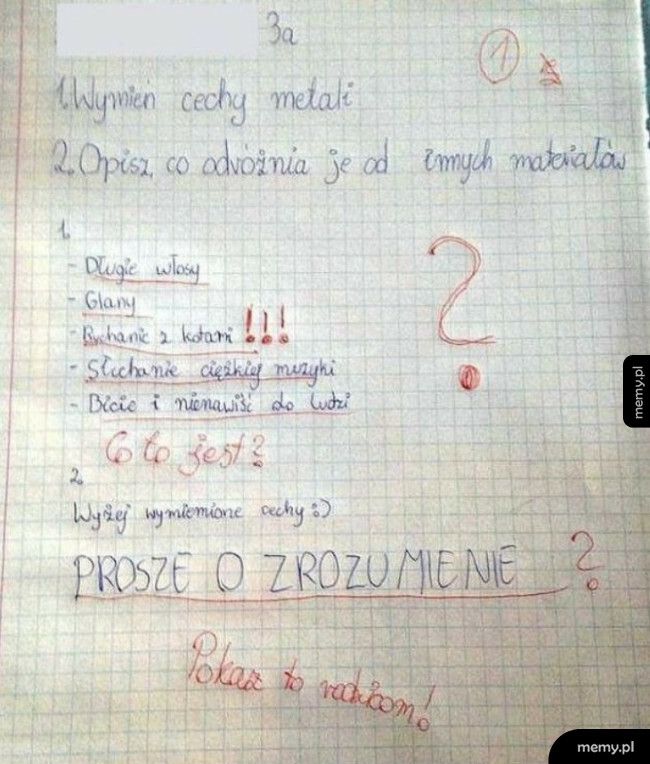 3a
1
1. Wymień cechy metali
2. Opisz, co odvóżnia je od innych materiałów
1.
- Długie włosy
- Glany
- Ruchanie z kotami !!!
- Słuchanie ciężkiej muzyki
- Bicie i nienawiść do ludzi
?
Co to jest?
2.
Wyżej wymiemione cechy :)
PROSZE O ZROZUMIENIE ?
Pokaż to rodzicom!
memy.pl
memy.pl